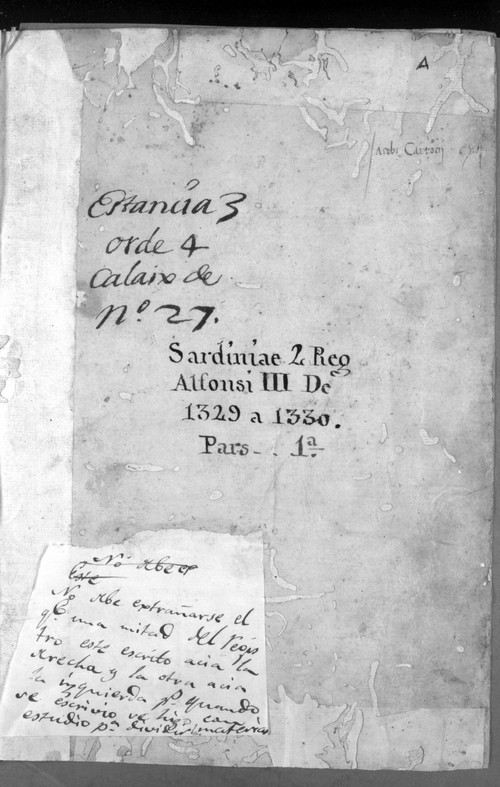 A
Estancia 3
orde 4
Calaix de
Nº 27.
Sardiniae 2 Reg
Alfonsi III De
1329 a 1330.
Pars 1ª
No debe
Este
No debe extrañarse, el
qe una mitad del Regis
tro este escrito acia la
derecha y la otra acia
la izquierda ps quando
se escrivio se hizo con
estudio pª dividir materias